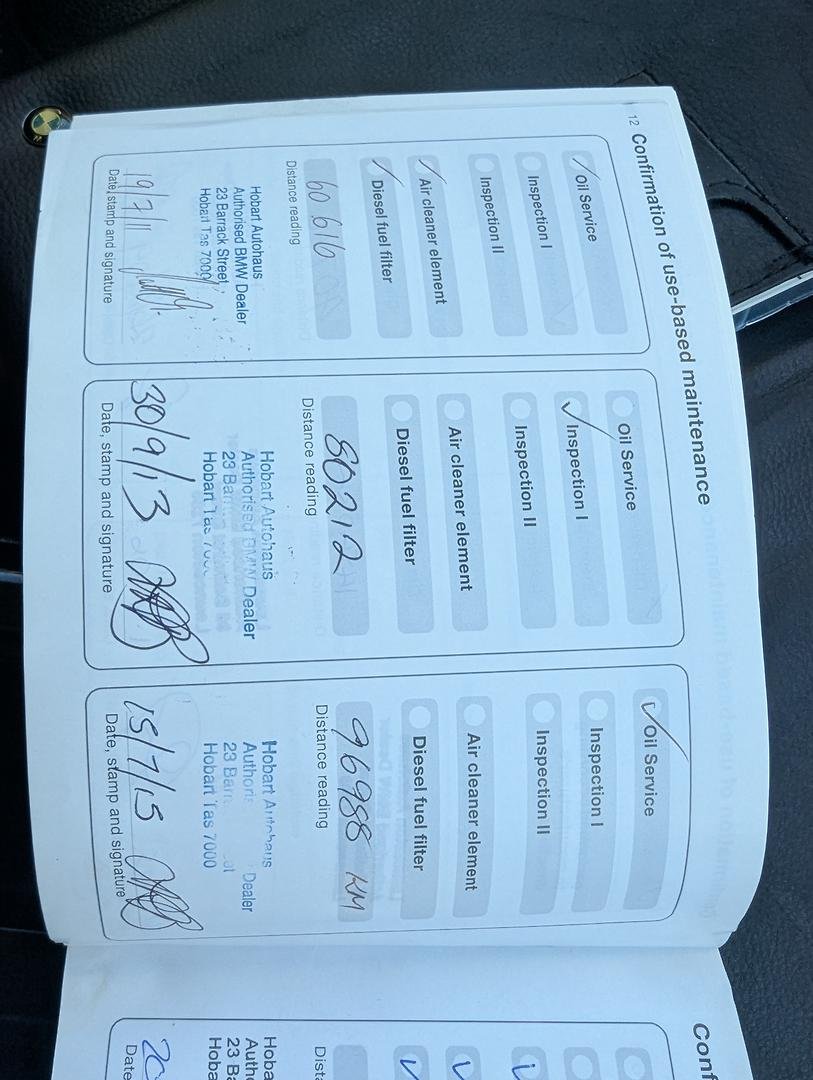 12 Confirmation of use-based maintenance
Oil Service
Inspection I
Inspection II
Air cleaner element
Diesel fuel filter
60 616
Distance reading
Hobart Autohaus
Authorised BMW Dealer
23 Barrack Street
Hobart Tas 7000
19/7/11
Date, stamp and signature
Oil Service
Inspection I
Inspection II
Air cleaner element
Diesel fuel filter
80212
Distance reading
Hobart Autohaus
Authorised BMW Dealer
23 Bar
Hobart Tas 7000
30/9/13
Date, stamp and signature
Oil Service
Inspection I
Inspection II
Air cleaner element
Diesel fuel filter
96988 KM
Distance reading
Hobart Autohaus
Authoris Dealer
23 Bar
Hobart Tas 7000
15/7/15
Date, stamp and signature
Conf
Dista
Hoba
Auth
23 Ba
Hoba
20
Date